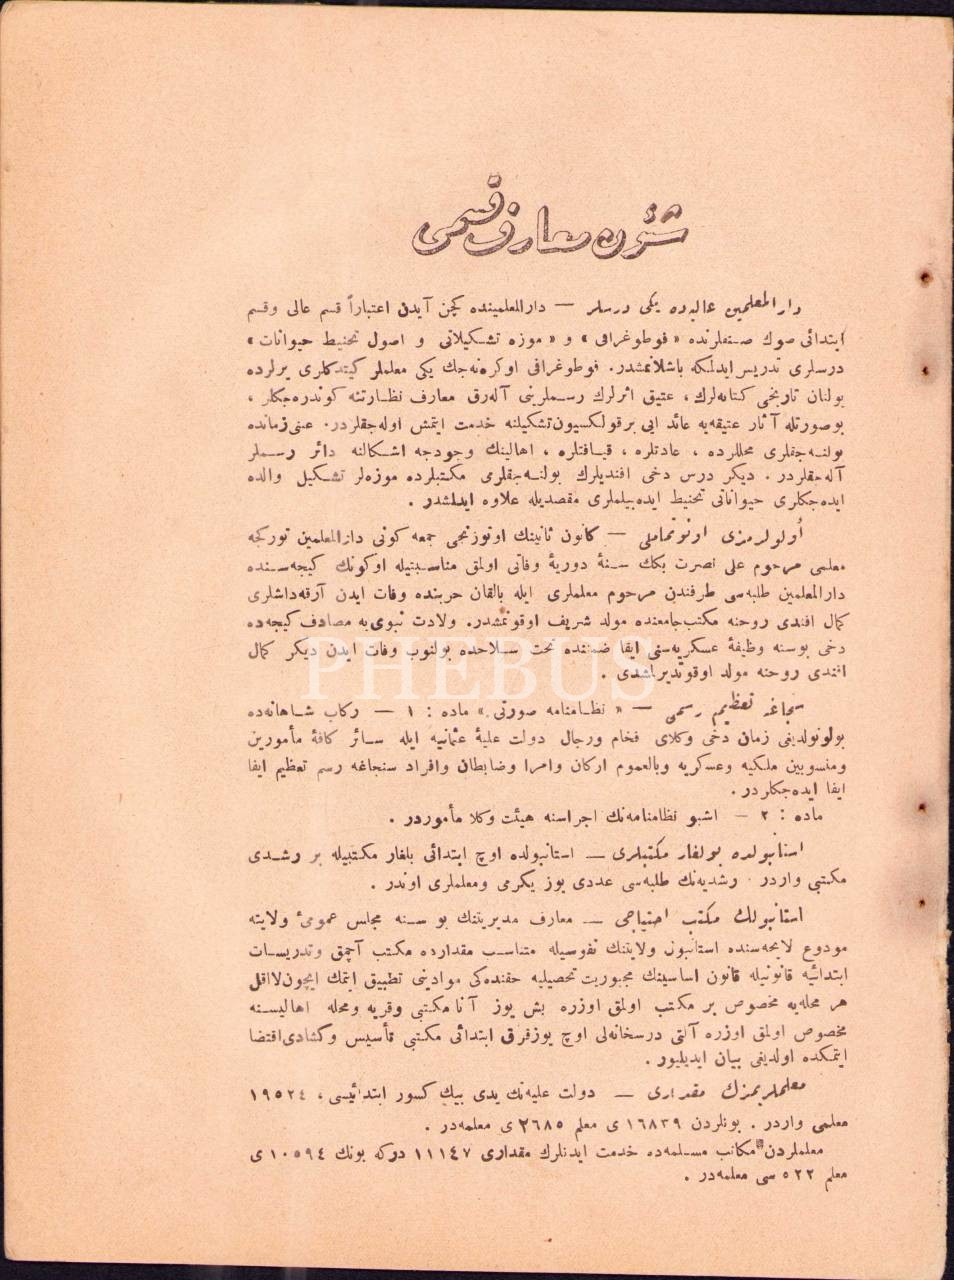 شئون معارف قسمى
دار المعلمين عاليه‌ده يكى درسلر — دارالمعلمينده كچن آيدن اعتباراً قسم عالى وقسم
ابتدائى صوك صنفلرنده « فوطوغرافى » و « موزه تشكيلاتى و اصول تحنيط حيوانات »
درسلرى تدريس ايدلمكه باشلانمشدر. فوطوغرافى اوكره‌نه‌جك يكى معلملر كيتدكلرى يرلرده
بولنان تاريخى كتابه‌لرك، عتيق اثرلرك رسملرينى آله‌رق معارف نظارتنه كوندره‌جكلر ،
بوصورتله آثار عتيقه‌يه عائد ايى برقولكسيون تشكيلنه خدمت ايتمش اوله‌جقلردر. عينى زمانده
بولنه‌جقلرى محللرده ، عادتلره ، قيافتلره ، اهالينك وجودجه اشكالنه دائر رسملر
آله‌جقلردر . ديكر درس دخى افنديلرك بولنه‌جقلرى مكتبلرده موزه‌لر تشكيل والده
ايده‌جكلرى حيواناتى تحنيط ايده‌بيلملرى مقصديله علاوه ايدلشدر .
اولولرمزى اونوتماملى — كانون ثانينك اوتوزنجى جمعه كونى دارالمعلمين توركجه
معلمى مرحوم على نصرت بكك سنهٔ دوريهٔ وفاتى اولمق مناسبتيله اوكونك كيجه‌سنده
دارالمعلمين طلبه‌سى طرفندن مرحوم معلملرى ايله بالقان حربنده وفات ايدن آرقه‌داشلرى
كمال افندى روحنه مكتب جامعنده مولد شريف اوقونمشدر. ولادت نبوى‌يه مصادف كيجه‌ده
دخى بوسنه وظيفهٔ عسكريه‌سنى ايفا ضمننده تحت سلاحده بولنوب وفات ايدن ديكر كمال
افندى روحنه مولد اوقونديرلشدى .
سنجاغه تعظيم رسمى — « نظامنامه صورتى » ماده : ١ — ركاب شاهانه‌ده
بولونولديغى زمان دخى وكلاى فخام ورجال دولت عليهٔ عثمانيه ايله سائر كافهٔ مأمورين
ومنسوبين ملكيه وعسكريه وبالعموم اركان وامرا وضابطان وافراد سنجاغه رسم تعظيم ايفا
ايفا ايده‌جكلردر .
ماده : ٢ — اشبو نظامنامه‌نك اجراسنه هيئت وكلا مأموردر .
استانبولده بولغار مكتبلرى — استانبولده اوچ ابتدائى بلغار مكتبيله بر رشدى
مكتبى واردر . رشديه‌نك طلبه‌سى عددى يوز يكرمى ومعلملرى اوندر .
استانبولك مكتب احتياجى — معارف مديريتنك بو سنه مجلس عمومىٔ ولايته
مودوع لايحه‌سنده استانبول ولايتنك نفوسيله متناسب مقدارده مكتب آچمق وتدريسات
ابتدائيه قانونيله قانون اساسينك مجبوريت تحصيليه حقنده‌كى موادينى تطبيق ايتمك ايچون لااقل
هر محله‌يه مخصوص بر مكتب اولمق اوزره بش يوز آنا مكتبى وقريه ومحله اهاليسنه
مخصوص اولمق اوزره آلتى درسخانه‌لى اوچ يوز قرق ابتدائى مكتبى تأسيس وكشادى اقتضا
ايتمكده اولديغى بيان ايديليور .
معلملريمزك مقدارى — دولت عليه‌نك يدى بيك كسور ابتدائيسى ، ١٩٥٢٤
معلمى واردر . بونلردن ١٦٨٣٩ ى معلم ٢٦٨٥ ى معلمه‌در .
معلملردن مكاتب مسلمه‌ده خدمت ايدنلرك مقدارى ١١١٤٧ دركه بونك ١٠٥٩٤ ى
معلم ٥٢٢ سى معلمه‌در .
PHEBUS